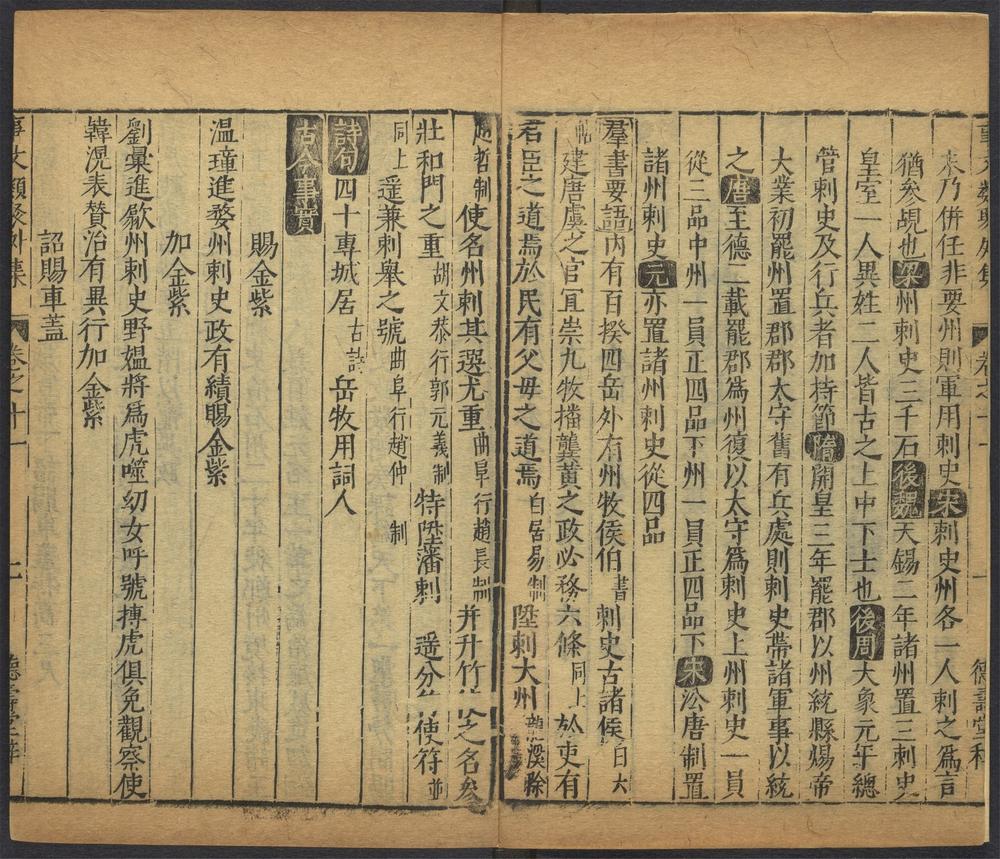 未乃併任非要州則軍用刺史宋刺史州各一人刺之爲言
猶參覘也梁州刺史三千石後魏天錫二年諸州置三刺史
皇室一人異姓二人皆古之上中下士也後周大象元年總
管刺史及行兵者加持節隋開皇三年罷郡以州統縣煬帝
大業初罷州置郡郡太守舊有兵處則刺史帶諸軍事以統
之唐至德二載罷郡爲州復以太守爲刺史上州刺史一員
從三品中州一員正四品下州一員正四品下宋㳂唐制置
諸州刺史元亦置諸州刺史從四品
羣書要語內有百揆四岳外有州牧侯伯書刺史古諸侯白六
帖建唐虞之官冝崇九牧播龔黄之政必務六條同上於吏有
君臣之道焉於民有父母之道焉白居易制陞刺大州
趙哲制使名州刺其選尤重曲阜行趙長制并升竹之名矣
壯和門之重胡文恭行郭元義制特陞藩刺遥分使符並
同上遥兼刺舉之號曲阜行趙仲制
詩句四十專城居古詩岳牧用詞人
古今事實
賜金紫
温璋進婺州刺史政有績賜金紫
加金紫
劉彙進歙州刺史野媪將爲虎噬幼女呼號搏虎俱免觀察使
韓滉表賛治有異行加金紫
詔賜車蓋
事文類聚外集 卷之十一